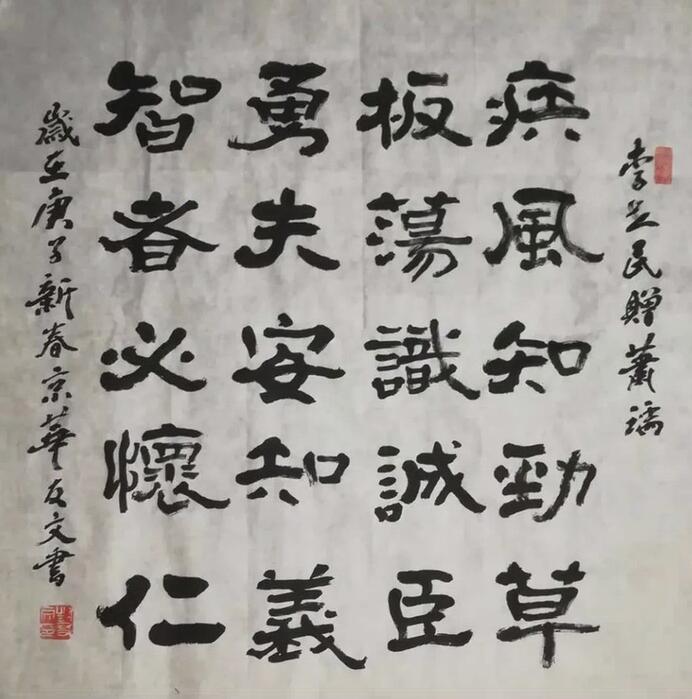 李世民贈蕭瑀
疾風知勁草
板蕩識誠臣
勇夫安知義
智者必懷仁
歲在庚子新春京華友文書